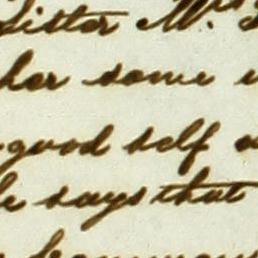 Sister Mrs
her some
good self
says that